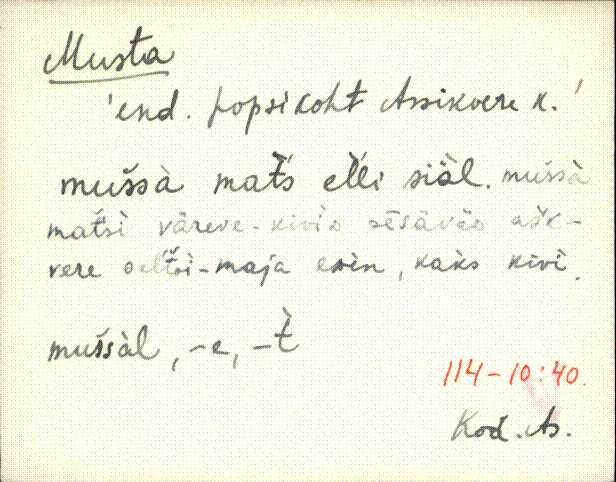 Musta
'end. popsikoht Assikvere k.'
mušsà mat̆s el̆li siäl. mušsà
mat̆si väreve-kivio sēsäväo ašk-
vere seltsi-maja esin, kaks kivì.
mušsàl, -e, -t̀
114-10:40.
Kod. As.